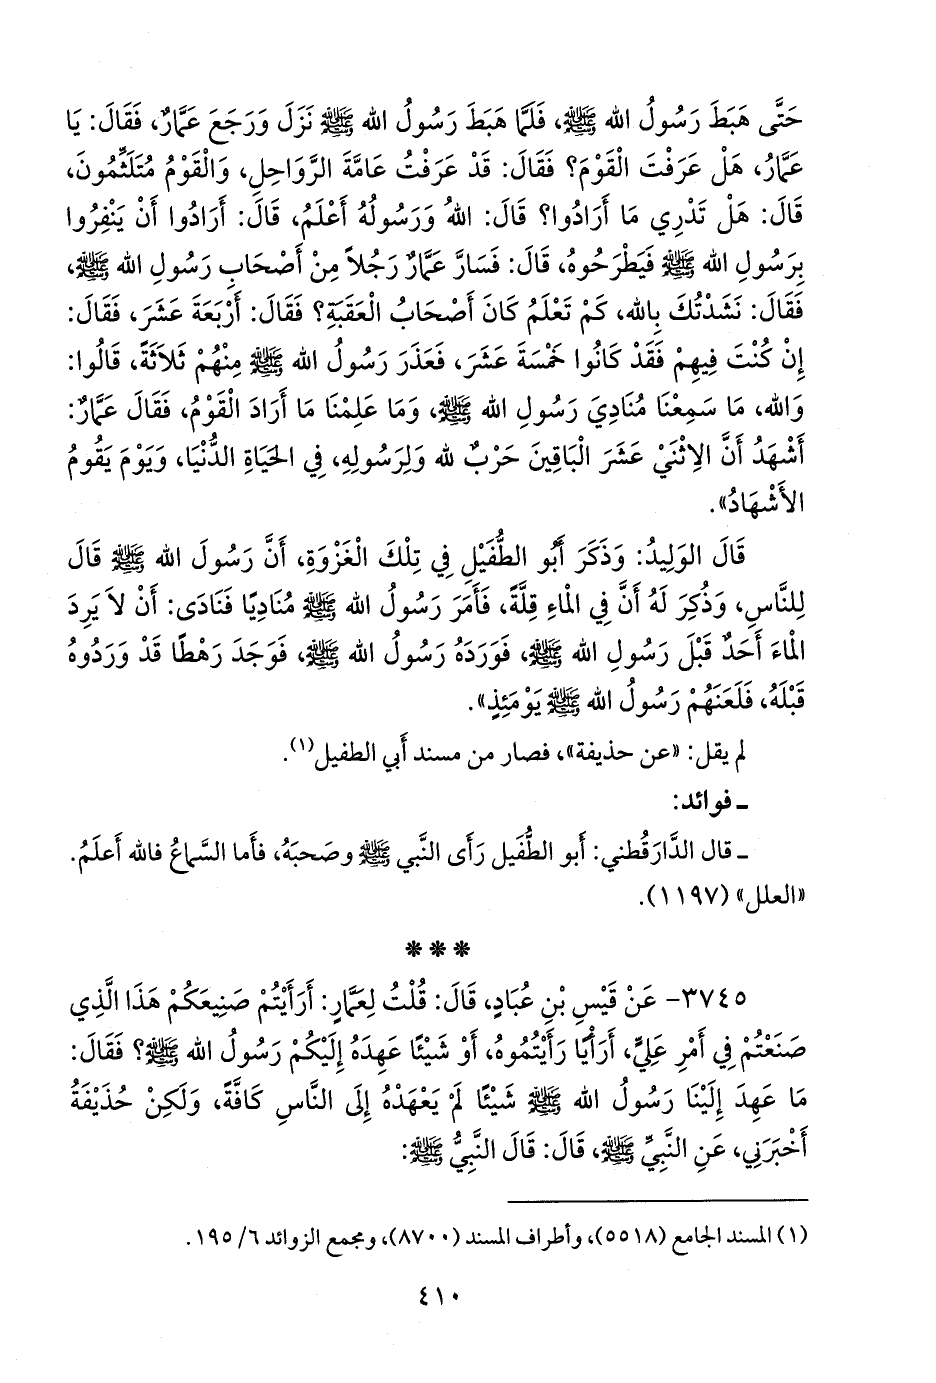 حَتَّى هَبَطَ رَسُولُ الله ﷺ، فَلَمَّا هَبَطَ رَسُولُ الله ﷺ نَزَلَ وَرَجَعَ عَمَّارٌ، فَقَالَ: يَا
عَمَّارُ، هَلْ عَرَفْتَ الْقَوْمَ؟ فَقَالَ: قَدْ عَرَفْتُ عَامَّةَ الرَّوَاحِلِ، وَالْقَوْمُ مُتَلَثِّمُونَ،
قَالَ: هَلْ تَدْرِي مَا أَرَادُوا؟ قَالَ: اللهُ وَرَسُولُهُ أَعْلَمُ، قَالَ: أَرَادُوا أَنْ يَنْفِرُوا
بِرَسُولِ الله ﷺ فَيَطْرَحُوهُ، قَالَ: فَسَارَّ عَمَّارٌ رَجُلاً مِنْ أَصْحَابِ رَسُولِ الله ﷺ،
فَقَالَ: نَشَدْتُكَ بِالله، كَمْ تَعْلَمُ كَانَ أَصْحَابُ الْعَقَبَةِ؟ فَقَالَ: أَرْبَعَةَ عَشَرَ، فَقَالَ:
إِنْ كُنْتَ فِيهِمْ فَقَدْ كَانُوا خَمْسَةَ عَشَرَ، فَعَذَرَ رَسُولُ الله ﷺ مِنْهُمْ ثَلَاثَةً، قَالُوا:
وَالله، مَا سَمِعْنَا مُنَادِيَ رَسُولِ الله ﷺ، وَمَا عَلِمْنَا مَا أَرَادَ الْقَوْمُ، فَقَالَ عَمَّارٌ:
أَشْهَدُ أَنَّ الِاثْنَيْ عَشَرَ الْبَاقِينَ حَرْبٌ لله وَلِرَسُولِهِ، فِي الحَيَاةِ الدُّنْيَا، وَيَوْمَ يَقُومُ
الأَشْهَادُ».
قَالَ الوَلِيدُ: وَذَكَرَ أَبُو الطُّفَيْلِ فِي تِلْكَ الْغَزْوَةِ، أَنَّ رَسُولَ الله ﷺ قَالَ
لِلنَّاسِ، وَذُكِرَ لَهُ أَنَّ فِي المَاءِ قِلَّةً، فَأَمَرَ رَسُولُ الله ﷺ مُنَادِيًا فَنَادَى: أَنْ لاَ يَرِدَ
المَاءَ أَحَدٌ قَبْلَ رَسُولِ الله ﷺ، فَوَرَدَهُ رَسُولُ الله ﷺ، فَوَجَدَ رَهْطًا قَدْ وَرَدُوهُ
قَبْلَهُ، فَلَعَنَهُمْ رَسُولُ الله ﷺ يَوْمَئِذٍ».
لم يقل: «عن حذيفة»، فصار من مسند أَبي الطفيل(١).
ـ فوائد:
ـ قال الدَّارَقُطني: أَبو الطُّفَيل رَأَى النَّبي ﷺ وصَحِبَهُ، فأَما السَّماعُ فالله أَعلَمُ.
«العلل» (١١٩٧).
***
٣٧٤٥- عَنْ قَيْسِ بْنِ عُبَادٍ، قَالَ: قُلْتُ لِعَمَّارٍ: أَرَأَيْتُمْ صَنِيعَكُمْ هَذَا الَّذِي
صَنَعْتُمْ فِي أَمْرِ عَلِيٍّ، أَرَأْيًا رَأَيْتُمُوهُ، أَوْ شَيْئًا عَهِدَهُ إِلَيْكُمْ رَسُولُ الله ﷺ؟ فَقَالَ:
مَا عَهِدَ إِلَيْنَا رَسُولُ الله ﷺ شَيْئًا لَمْ يَعْهَدْهُ إِلَى النَّاسِ كَافَّةً، وَلَكِنْ حُذَيْفَةُ
أَخْبَرَنِي، عَنِ النَّبِيِّ ﷺ، قَالَ: قَالَ النَّبِيُّ ﷺ:
(١) المسند الجامع (٥٥١٨)، وأطراف المسند (٨٧٠٠)، ومجمع الزوائد ٦/ ١٩٥.
٤١٠